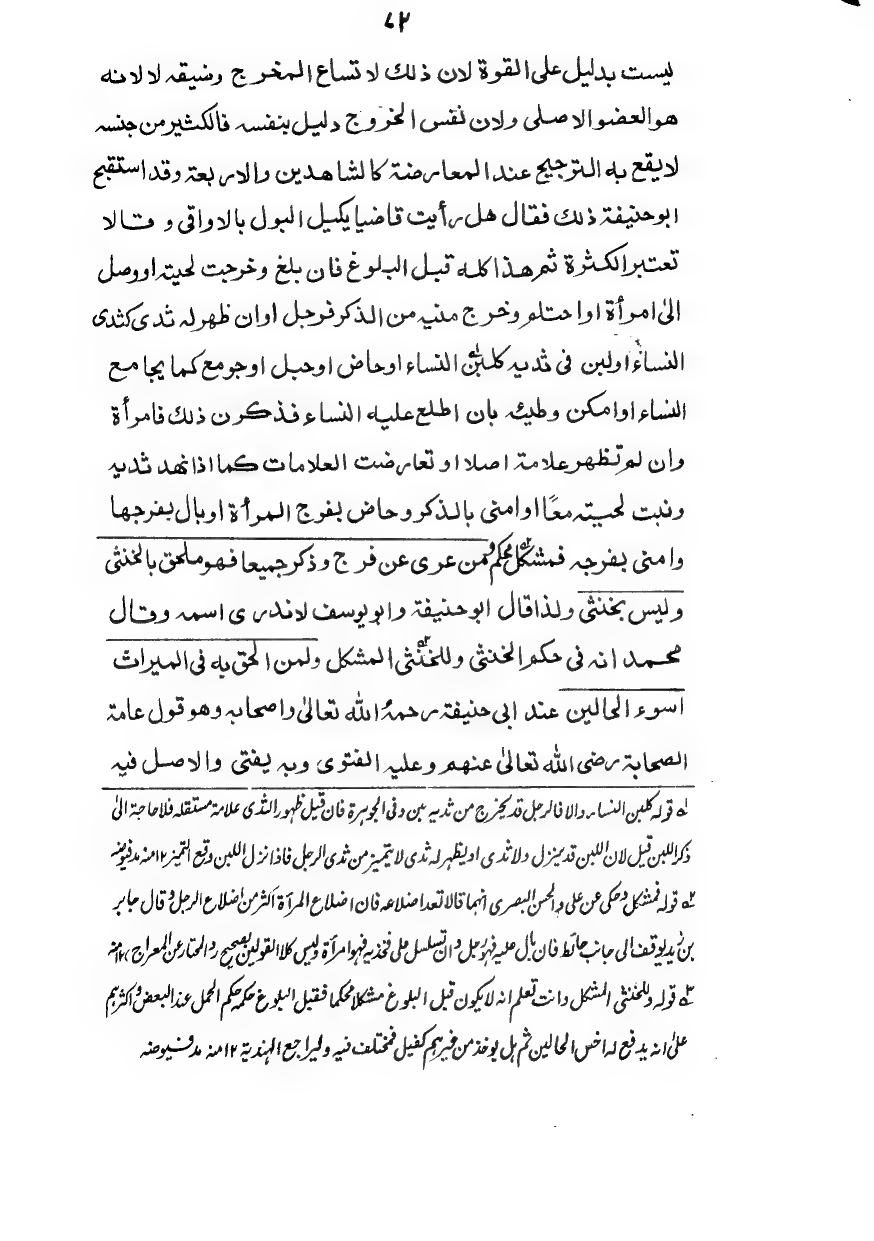 ٧٢
ليست بدليل على القوة لان ذلك لاتساع المخرج وضيقه لا لانه
هو العضو الاصلى ولان نفس الخروج دليل بنفسه فالكثير من جنسه
لا يقع به الترجيح عند المعارضة كالشاهدين والاربعة وقد استقبح
ابوحنيفة ذلك فقال هل رأيت قاضيا يكيل البول بالاواقى و قالا
تعتبر الكثرة ثم هذا كله قبل البلوغ فان بلغ وخرجت لحيته او وصل
الىٰ امرأة او احتلم وخرج منيه من الذكر فرجل اوان ظهر له ثدى كثدى
النساء اولبن فى ثديه كلبن له النساء اوحاض اوحبل اوجومع كما يجامع
النساء اوامكن وطيئه بان اطلع عليه النساء فذكرن ذلك فامرأة
وان لم تظهر علامة اصلا او تعارضت العلامات كما اذا نهد ثديه
ونبت لحيته معًا اوامنى بالذكر وحاض بفرج المرأة اوبال بفرجها
وامنى بفرجه فمشكل محكم ومن عرى عن فرج وذكر جميعا فهو ملحق بالخنثى
وليس بخنثى ولذا قال ابوحنيفة وابويوسف لاندرى اسمه وقال
محمد انه فى حكم الخنثى وللخنثى المشكل ولمن الحق به فى الميراث
اسوء الحالين عند ابى حنيفة رحمهُ الله تعالىٰ واصحابه وهو قول عامة
الصحابة رضى الله تعالىٰ عنهم وعليه الفتوى وبه يفتى والاصل فيه
له قوله كلبن النساء والا فالرجل قد يخرج من ثديه لبن وفى الجوهرة فان قيل ظهور الثدى علامة مستقله فلا حاجة الىٰ
ذكر اللبن قيل لان اللبن قد ينزل ولا ثدى او يظهر له ثدى لا يتميز من ثدى الرجل فاذا نزل اللبن وقع التميز ١٢ منه مدفيوضه
قوله فمشكل وحكى عن على والحسن البصرى انهما قالا تعد اضلاعه فان اضلاع المرأة اكثر من اضلاع الرجل وقال جابر
بن زيد يوقف الى جانب حائط فان بال عليه فهو رجل وان تسلسل على فخذيه فهو امرأة وليس كلا القولين بصحيح رد المحتار عن المعراج ١٢ منه
قوله وللخنثى المشكل وانت تعلم انه لا يكون قبل البلوغ مشكلا محكما فقيل البلوغ حكمه حكم الحمل عند البعض واكثرهم
علىٰ انه يدفع له اخس الحالين ثم هل يوخذ من غيرهم كفيل فمختلف فيه وليراجع الهندية ١٢ منه مدفيوضه